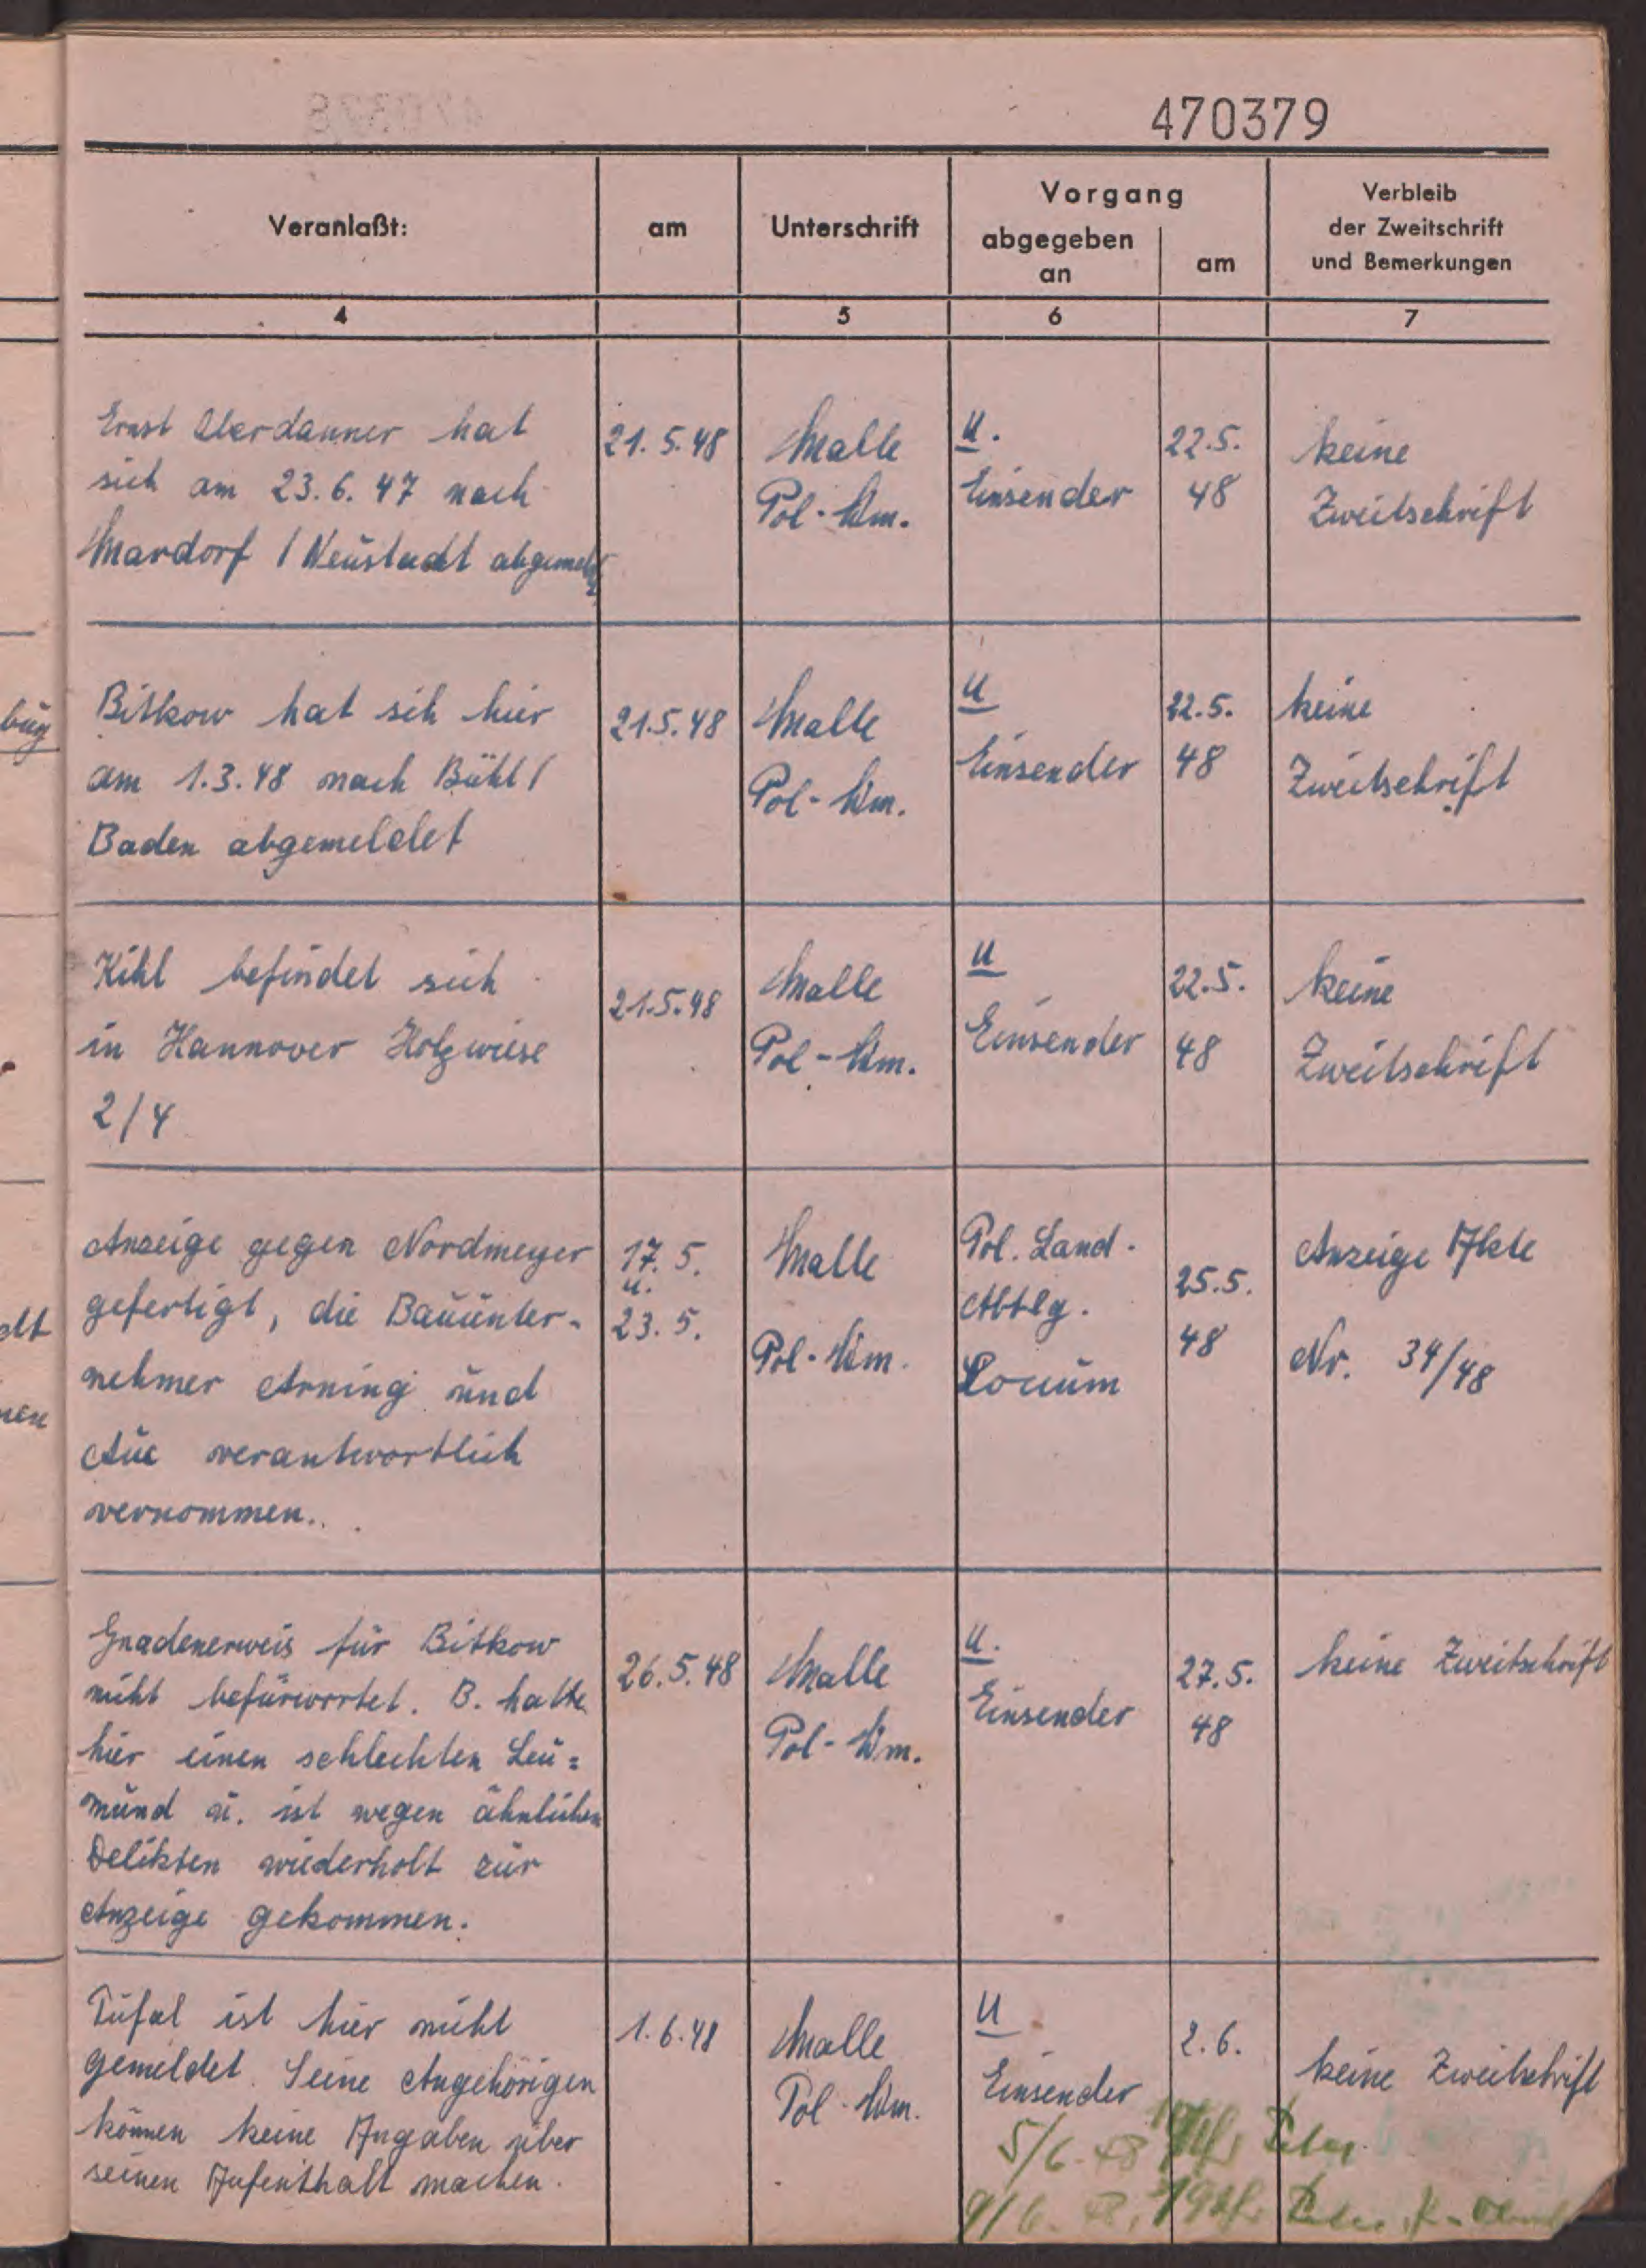 470379
Veranlaßt:
am
Unterschrift
Vorgang
abgegeben
an
am
Verbleib
der Zweitschrift
und Bemerkungen
4
5
6
7
Ernst Oberdanner hat
sich am 23.6.47 nach
Mardorf / Neustadt abgemeld
21.5.48
Malle
Pol-Wm.
U.
Einsender
22.5.
48
keine
Zweitschrift
Bitkow hat sich hier
am 1.3.48 nach Bühl /
Baden abgemeldet
21.5.48
Malle
Pol-Wm.
U
Einsender
22.5.
48
keine
Zweitschrift
Kihl befindet sich
in Hannover Holzwiese
2/4
21.5.48
Malle
Pol-Wm.
U
Einsender
22.5.
48
keine
Zweitschrift
Anzeige gegen Nordmeyer
gefertigt, die Bauunter-
nehmer Arning und
Aue verantwortlich
vernommen.
17.5.
u.
23.5.
Malle
Pol-Wm.
Pol. Land.
Abtlg.
Loccum
25.5.
48
Anzeige Akte
Nr. 34/48
Gnadenerweis für Bitkow
nicht befürwortet. B. hatte
hier einen schlechten Leu=
mund u. ist wegen ähnlichen
Delikten wiederholt zur
Anzeige gekommen.
26.5.48
Malle
Pol-Wm.
U.
Einsender
27.5.
48
keine Zweitschrift
Tüfal ist hier nicht
gemeldet. Seine Angehörigen
können keine Angaben über
seinen Aufenthalt machen.
1.6.48
Malle
Pol-Wm.
U
Einsender
2.6.
keine Zweitschrift
5/6. 48
9/6. 48,